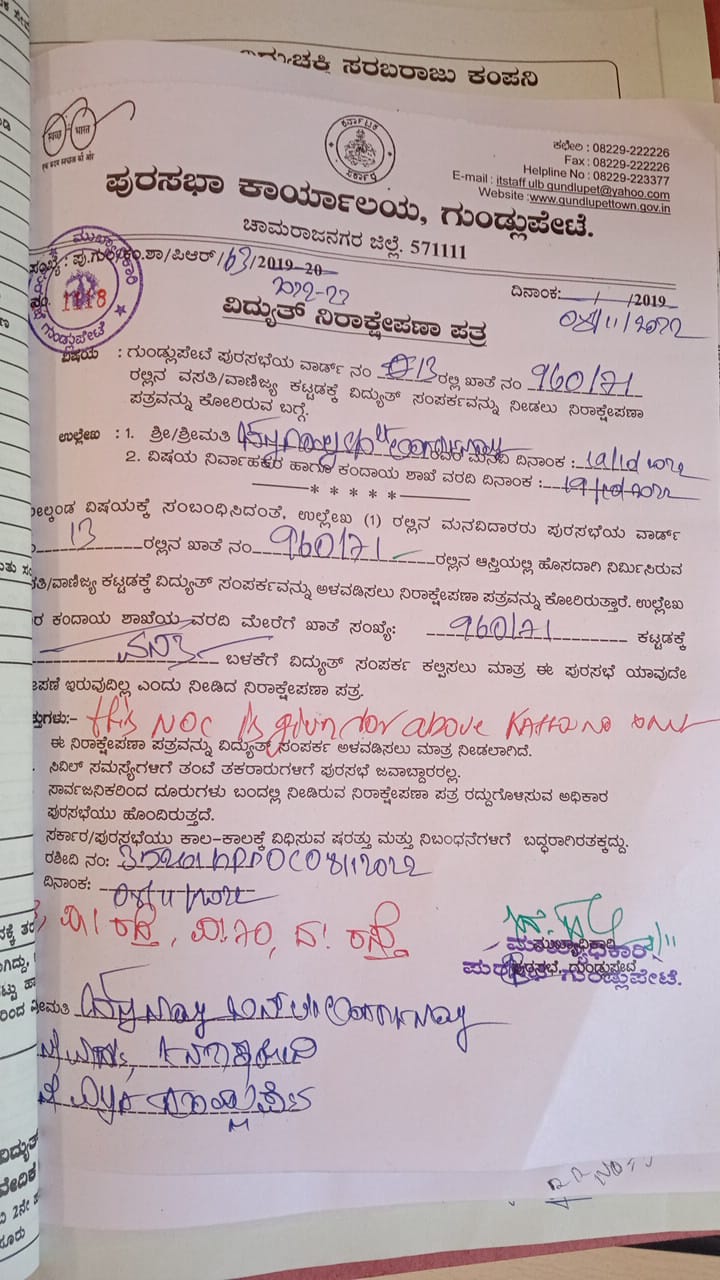 ವಿದ್ಯುಚ್ಛಕ್ತಿ ಸರಬರಾಜು ಕಂಪನಿ
स्वच्छ भारत
एक कदम स्वच्छता की ओर
ಕರ್ನಾಟಕ ಸರ್ಕಾರ
ಕಛೇರಿ : 08229-222226
Fax : 08229-222226
Helpline No : 08229-223377
E-mail : itstaff ulb gundlupet@yahoo.com
Website : www.gundlupettown.gov.in
ಪುರಸಭಾ ಕಾರ್ಯಾಲಯ, ಗುಂಡ್ಲುಪೇಟೆ.
ಚಾಮರಾಜನಗರ ಜಿಲ್ಲೆ. 571111
ಮುಖ್ಯಾಧಿಕಾರಿ
1118
ಗುಂಡ್ಲುಪೇಟೆ
ಸಂಖ್ಯೆ: ಪು.ಗುಂ/ಕಂ.ಶಾ/ಪಿಆರ್/63/2019-20
2022-23
ದಿನಾಂಕ: / /2019
08/11/2022
ವಿದ್ಯುತ್ ನಿರಾಕ್ಷೇಪಣಾ ಪತ್ರ
ವಿಷಯ : ಗುಂಡ್ಲುಪೇಟೆ ಪುರಸಭೆಯ ವಾರ್ಡ್ ನಂ 13 ರಲ್ಲಿ ಖಾತೆ ನಂ 960/71
ರಲ್ಲಿನ ವಸತಿ/ವಾಣಿಜ್ಯ ಕಟ್ಟಡಕ್ಕೆ ವಿದ್ಯುತ್ ಸಂಪರ್ಕವನ್ನು ನೀಡಲು ನಿರಾಕ್ಷೇಪಣಾ
ಪತ್ರವನ್ನು ಕೋರಿರುವ ಬಗ್ಗೆ.
ಉಲ್ಲೇಖ : 1. ಶ್ರೀ/ಶ್ರೀಮತಿ ರವರ ಮನವಿ ದಿನಾಂಕ :
2. ವಿಷಯ ನಿರ್ವಾಹಕರ ಹಾಗೂ ಕಂದಾಯ ಶಾಖೆ ವರದಿ ದಿನಾಂಕ :
* * * * *
ಮೇಲ್ಕಂಡ ವಿಷಯಕ್ಕೆ ಸಂಬಂಧಿಸಿದಂತೆ, ಉಲ್ಲೇಖ (1) ರಲ್ಲಿನ ಮನವಿದಾರರು ಪುರಸಭೆಯ ವಾರ್ಡ್
13 ರಲ್ಲಿನ ಖಾತೆ ನಂ 960/71 ರಲ್ಲಿನ ಆಸ್ತಿಯಲ್ಲಿ ಹೊಸದಾಗಿ ನಿರ್ಮಿಸಿರುವ
ವಸತಿ/ವಾಣಿಜ್ಯ ಕಟ್ಟಡಕ್ಕೆ ವಿದ್ಯುತ್ ಸಂಪರ್ಕವನ್ನು ಅಳವಡಿಸಲು ನಿರಾಕ್ಷೇಪಣಾ ಪತ್ರವನ್ನು ಕೋರಿರುತ್ತಾರೆ. ಉಲ್ಲೇಖ
ರ ಕಂದಾಯ ಶಾಖೆಯ ವರದಿ ಮೇರೆಗೆ ಖಾತೆ ಸಂಖ್ಯೆ: 960/71 ಕಟ್ಟಡಕ್ಕೆ
ವಸತಿ ಬಳಕೆಗೆ ವಿದ್ಯುತ್ ಸಂಪರ್ಕ ಕಲ್ಪಿಸಲು ಮಾತ್ರ ಈ ಪುರಸಭೆ ಯಾವುದೇ
ಕ್ಷೇಪಣೆ ಇರುವುದಿಲ್ಲ ಎಂದು ನೀಡಿದ ನಿರಾಕ್ಷೇಪಣಾ ಪತ್ರ.
ತ್ತುಗಳು:- this NOC is given for above KATHA NO ONLY
ಈ ನಿರಾಕ್ಷೇಪಣಾ ಪತ್ರವನ್ನು ವಿದ್ಯುತ್ ಸಂಪರ್ಕ ಅಳವಡಿಸಲು ಮಾತ್ರ ನೀಡಲಾಗಿದೆ.
ಸಿವಿಲ್ ಸಮಸ್ಯೆಗಳಿಗೆ ತಂಟೆ ತಕರಾರುಗಳಿಗೆ ಪುರಸಭೆ ಜವಾಬ್ದಾರರಲ್ಲ.
ಸಾರ್ವಜನಿಕರಿಂದ ದೂರುಗಳು ಬಂದಲ್ಲಿ ನೀಡಿರುವ ನಿರಾಕ್ಷೇಪಣಾ ಪತ್ರ ರದ್ದುಗೊಳಿಸುವ ಅಧಿಕಾರ
ಪುರಸಭೆಯು ಹೊಂದಿರುತ್ತದೆ.
ಸರ್ಕಾರ/ಪುರಸಭೆಯು ಕಾಲ-ಕಾಲಕ್ಕೆ ವಿಧಿಸುವ ಷರತ್ತು ಮತ್ತು ನಿಬಂಧನೆಗಳಿಗೆ ಬದ್ಧರಾಗಿರತಕ್ಕದ್ದು.
ರಶೀದಿ ನಂ:
ದಿನಾಂಕ: 08/11/2022
ಮುಖ್ಯಾಧಿಕಾರಿ
ಪುರಸಭೆ, ಗುಂಡ್ಲುಪೇಟೆ
ಮುಖ್ಯಾಧಿಕಾರಿ
ಪುರಸಭೆ ಗುಂಡ್ಲುಪೇಟೆ.
ಶ್ರೀಮತಿ